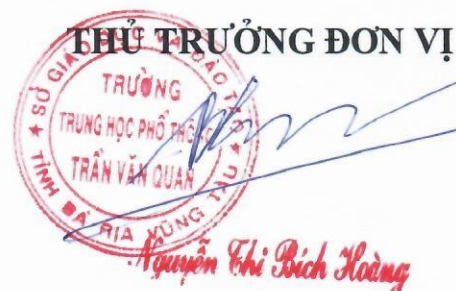 THỦ TRƯỞNG ĐƠN VỊ
SỞ GIÁO DỤC VÀ ĐÀO TẠO
TRƯỜNG
TRUNG HỌC PHỔ THÔNG
TRẦN VĂN QUAN
★ TỈNH BÀ RỊA VŨNG TÀU ★
Nguyễn Thi Bích Hoàng